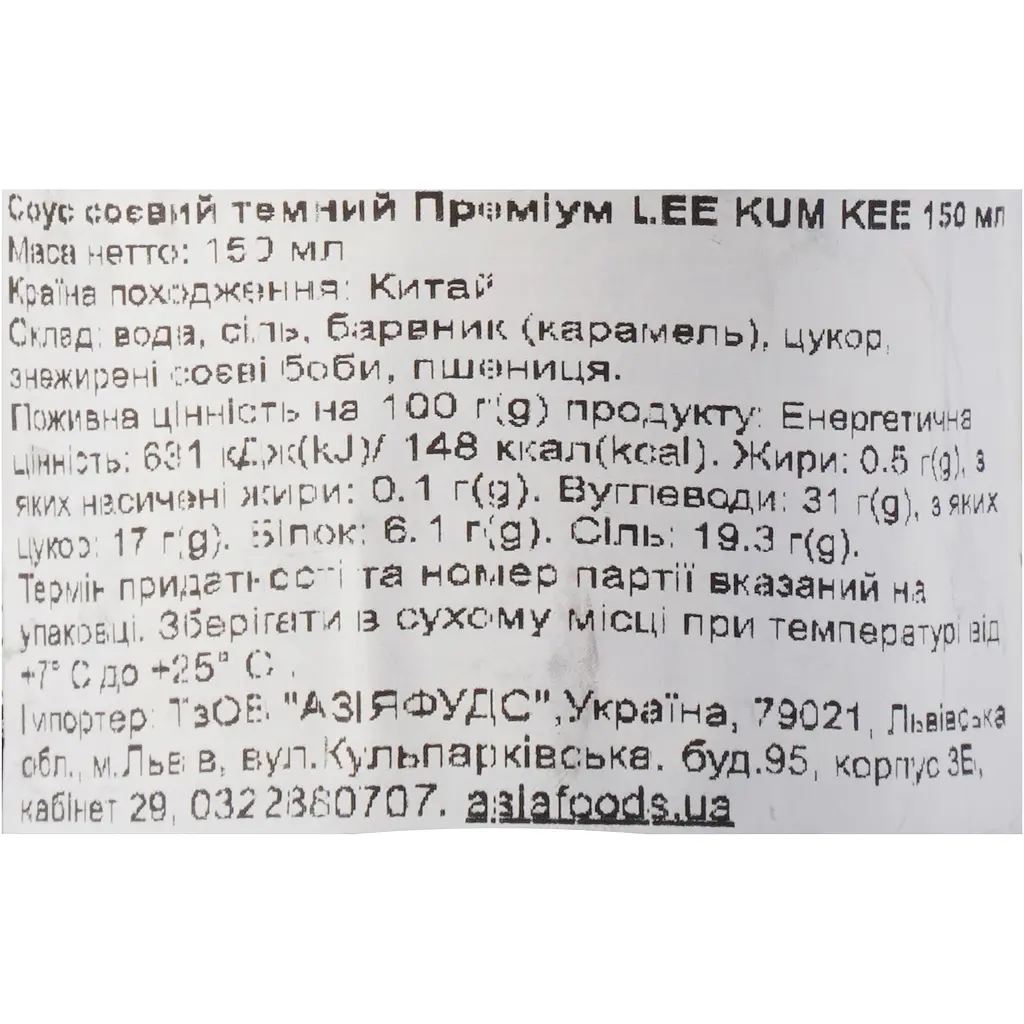 Соус соєвий темний Преміум LEE KUM KEE 150 мл
Маса нетто: 150 мл
Країна походження: Китай
Склад: вода, сіль, барвник (карамель), цукор,
знежирені соєві боби, пшениця.
Поживна цінність на 100 г(g) продукту: Енергетична
цінність: 631 кДж(kJ)/ 148 ккал(kcal). Жири: 0.5 г(g), з
яких насичені жири: 0.1 г(g). Вуглеводи: 31 г(g), з яких
цукор: 17 г(g). Білок: 6.1 г(g). Сіль: 19.3 г(g).
Термін придатності та номер партії вказаний на
упаковці. Зберігати в сухому місці при температурі від
+7° С до +25° С .
Імпортер: ТзОВ "АЗІЯФУДС",Україна, 79021, Львівська
обл., м.Львів, вул.Кульпарківська. буд.95, корпус 3Б,
кабінет 29, 0322880707. asiafoods.ua